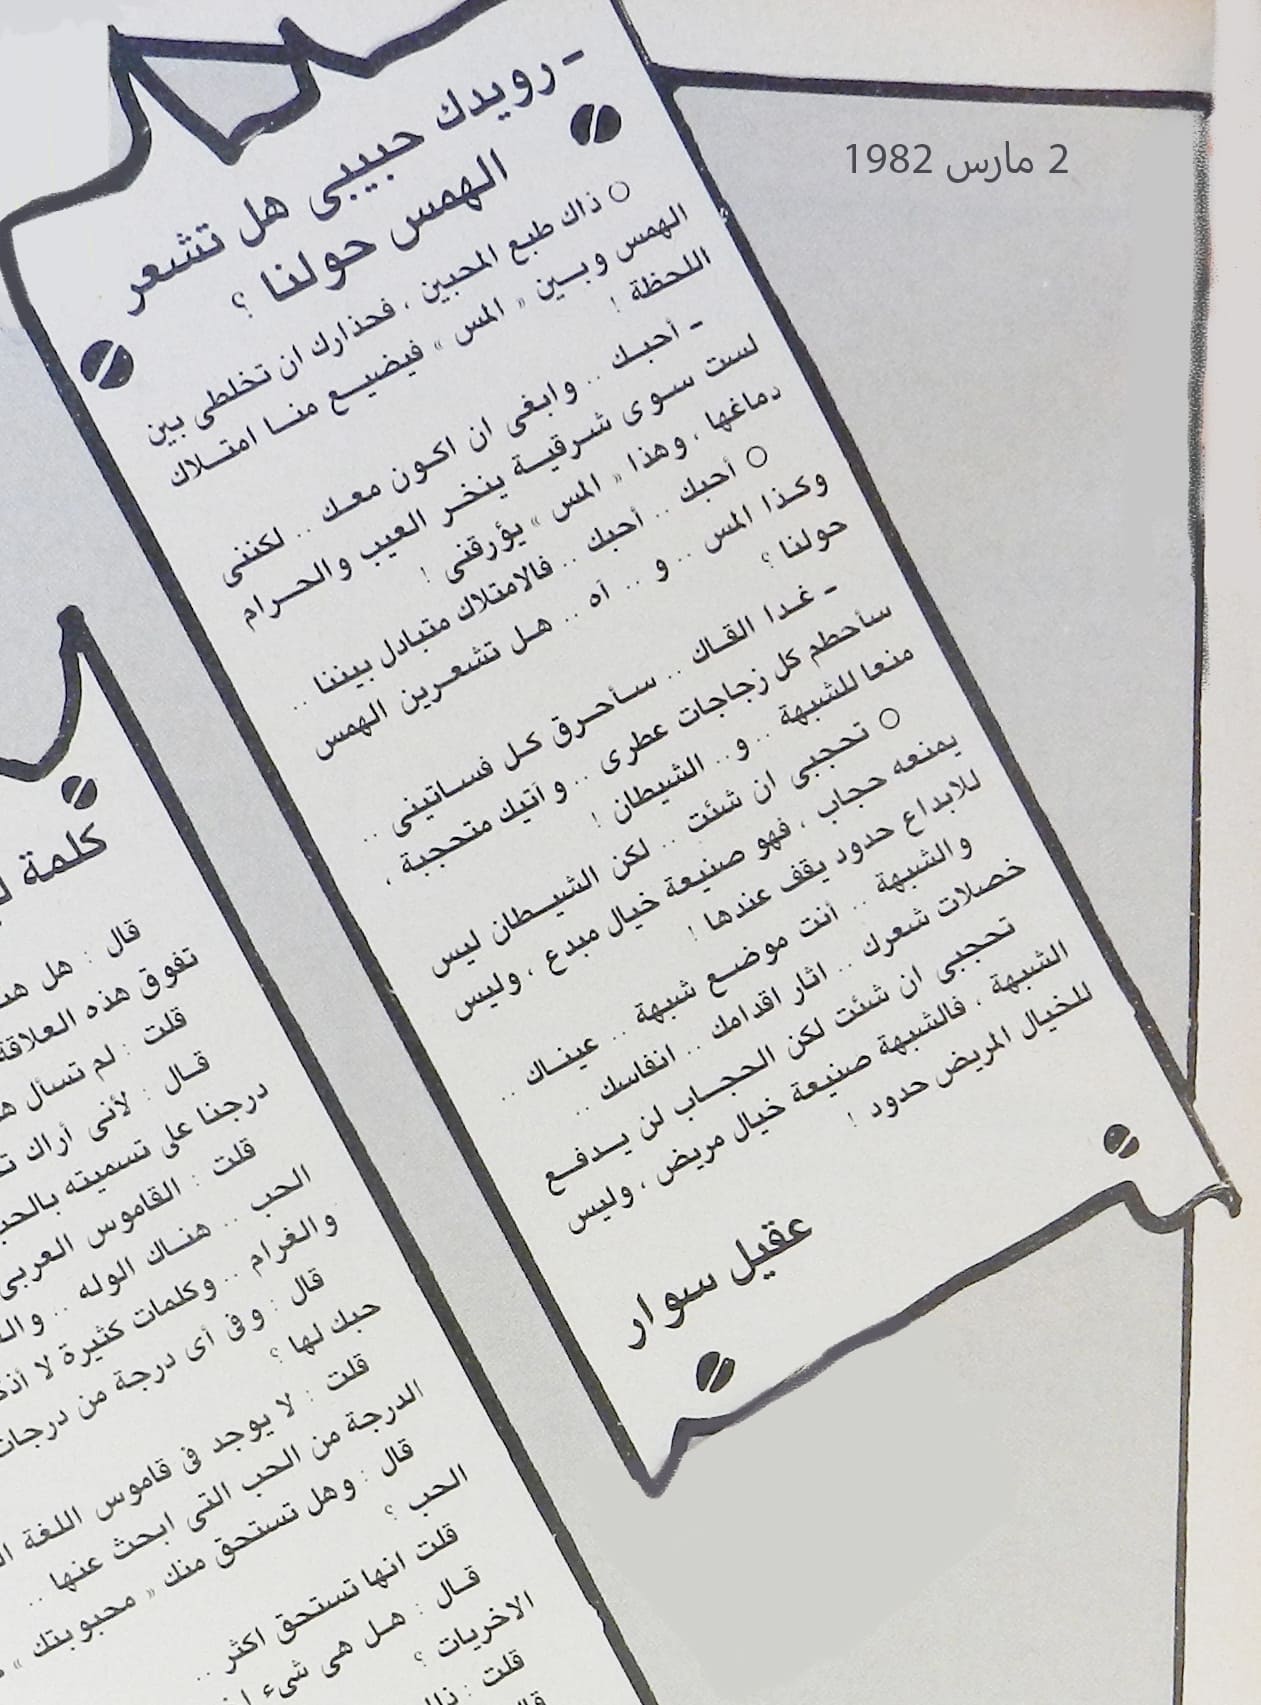 2 مارس 1982
- رويدك حبيبى هل تشعر
الهمس حولنا ؟
○ ذاك طبع المحبين ، فحذارك ان تخلطى بين
الهمس وبين « المس » فيضيع منا امتلاك
اللحظة !
- أحبك .. وابغى ان اكون معك .. لكننى
لست سوى شرقية ينخر العيب والحرام
دماغها ، وهذا « المس » يؤرقنى !
○ أحبك .. أحبك .. فالامتلاك متبادل بيننا ..
وكذا المس .. و .. أه .. هل تشعرين الهمس
حولنا ؟
- غدا القاك .. سأحرق كل فساتينى ..
سأحطم كل زجاجات عطرى .. وأتيك متحجبة ،
منعا للشبهة .. و.. الشيطان !
○ تحجبى ان شئت .. لكن الشيطان ليس
يمنعه حجاب ، فهو صنيعة خيال مبدع ، وليس
للابداع حدود يقف عندها !
والشبهة .. أنت موضع شبهة .. عيناك ..
خصلات شعرك .. اثار اقدامك .. انفاسك ..
تحجبى ان شئت لكن الحجاب لن يدفع
الشبهة ، فالشبهة صنيعة خيال مريض ، وليس
للخيال المريض حدود !
عقيل سوار
كلمة
قال : هل
تفوق هذه العلاقة
قلت : لم تسأل
قال : لأنى أراك
درجنا على تسميته بالحب
قلت : القاموس العربى
الحب .. هناك الوله ..
والغرام .. وكلمات كثيرة لا
قال : وفى أى درجة من درجات
حبك لها ؟
قلت : لا يوجد فى قاموس اللغة
الدرجة من الحب التى ابحث عنها ..
قال : وهل تستحق منك « محبوبتك »
الحب ؟
قلت انها تستحق اكثر ..
قال : هل هى شىء
الاخريات ؟
قلت :